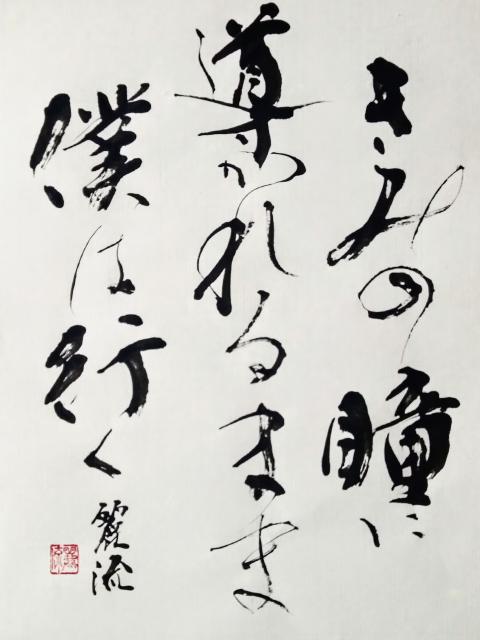 きみの瞳に
導かれるまま
僕は行く
麗流